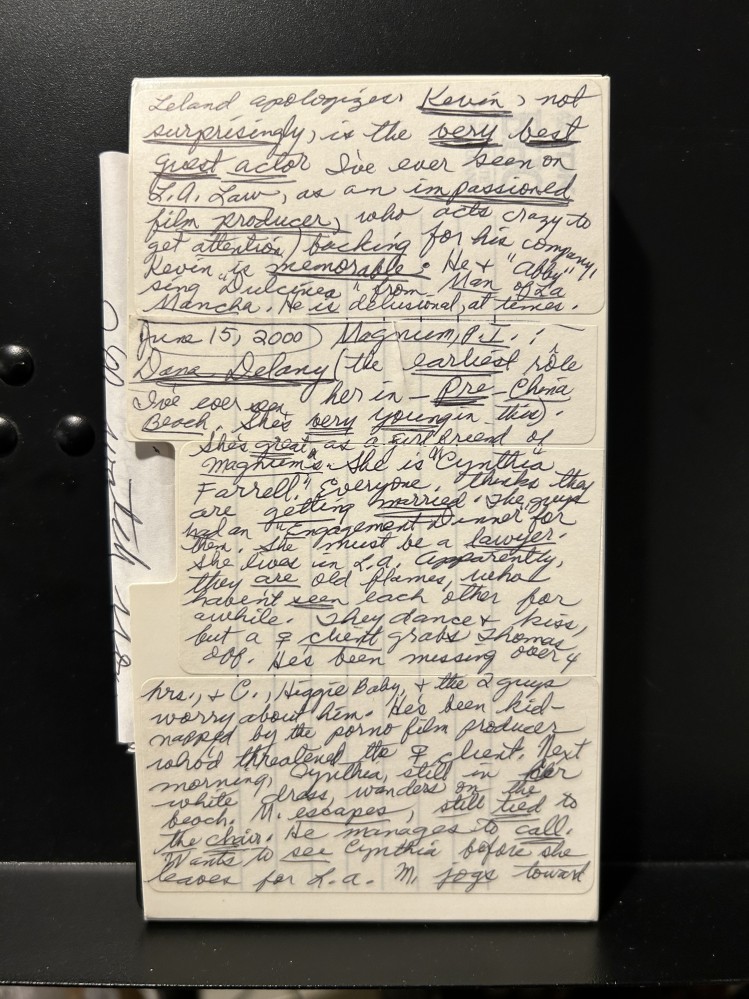 Leland apologizes. Kevin, not
surprisingly, is the very best
guest actor I've ever seen on
L.A. Law, as an impassioned
film producer, who acts crazy to
get attention, backing for his company,
Kevin is memorable. He + "Abby"
sing "Dulcinea" from Man of La
Mancha. He is delusional, at times.
June 15, 2000) Magnum, P.I.:
Dana Delany (the earliest rôle
I've ever seen her in - Pre-China
Beach. She's very young in this).
She's great, as a girlfriend of
Magnum's. She is "Cynthia
Farrell." Everyone thinks they
are getting married. The guys
had an "Engagement Dinner" for
them. She must be a lawyer.
She lives in L.A. Apparently,
they are old flames, who
haven't seen each other for
awhile. They dance + kiss,
but a ♀ client grabs Thomas
off. He's been missing over 4
hrs., + C., Higgie Baby, + the 2 guys
worry about him. He's been kid-
napped by the porno film producer
who'd threatened the ♀ client. Next
morning, Cynthia, still in her
white dress, wanders on the
beach. M. escapes, still tied to
the chair. He manages to call.
Wants to see Cynthia before she
leaves for L.A. M. jogs toward